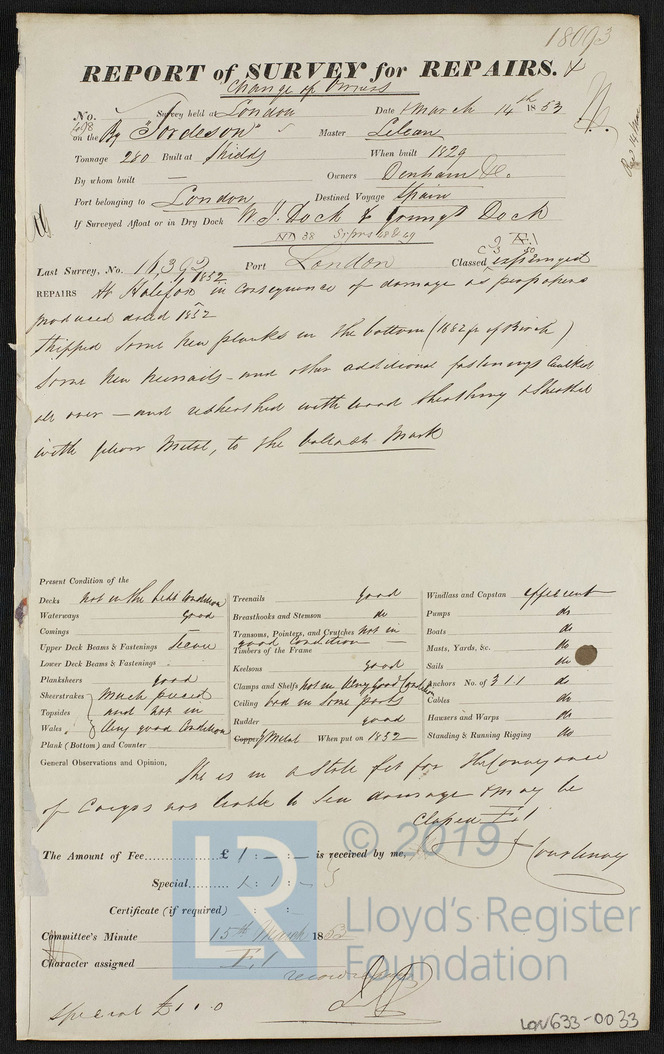 18093
REPORT of SURVEY for REPAIRS.
Change of Owners
No. Survey held at London Date March 14th 1853
on the Bq "Tordeson" Master Lelean
Tonnage 280 Built at Shields When built 1829
By whom built — Owners Denham &c.
Port belonging to London Destined Voyage Spain
If Surveyed Afloat or in Dry Dock W. I. Dock & Young's Dock
Last Survey, No. Port London Classed expunged
1852
REPAIRS At Halifax in consequence of damage as pr papers
produced dated 1852
Shipped some new planks in the bottom
some new treenails – and other additional fastenings Caulked
all over – and resheathed with wood sheathing & sheathed
with yellow Metal, to the ballast Mark
Present Condition of the
Decks Not in the best Condition
Waterways Good
Comings
Upper Deck Beams & Fastenings
Lower Deck Beams
Planksheers good
Sheerstrakes much pieced
Topsides and not in
Wales, Very good Condition
Plank (Bottom) and Counter
Treenails good
Breasthooks and Stemson do
Transoms, Pointers, and Crutches Not in
good Condition
Timbers of the Frame —
Keelsons Good
Clamps and Shelfs Not in Very Good Condition
Ceiling bad in some parts
Rudder good
Copper Y Metal When put on 1852
Windlass and Capstan efficient
Pumps do
Boats do
Masts, Yards, &c. do
Sails do
Anchors No. of 3 1 1 do
Cables do
Hawsers and Warps do
Standing & Running Rigging do
General Observations and Opinion,
She is in a State fit for the Conveyance
of Cargos not liable to Sea damage & may be
Classed Æ 1
The Amount of Fee £ 1 : – : – is received by me, J Courtenay
Special 1 : 1 : –
Certificate (if required)
Committee's Minute 15th March 1853
Character assigned Æ 1
special £1.1.0
LON633-0033
LR
© 2019
Lloyd's Register
Foundation